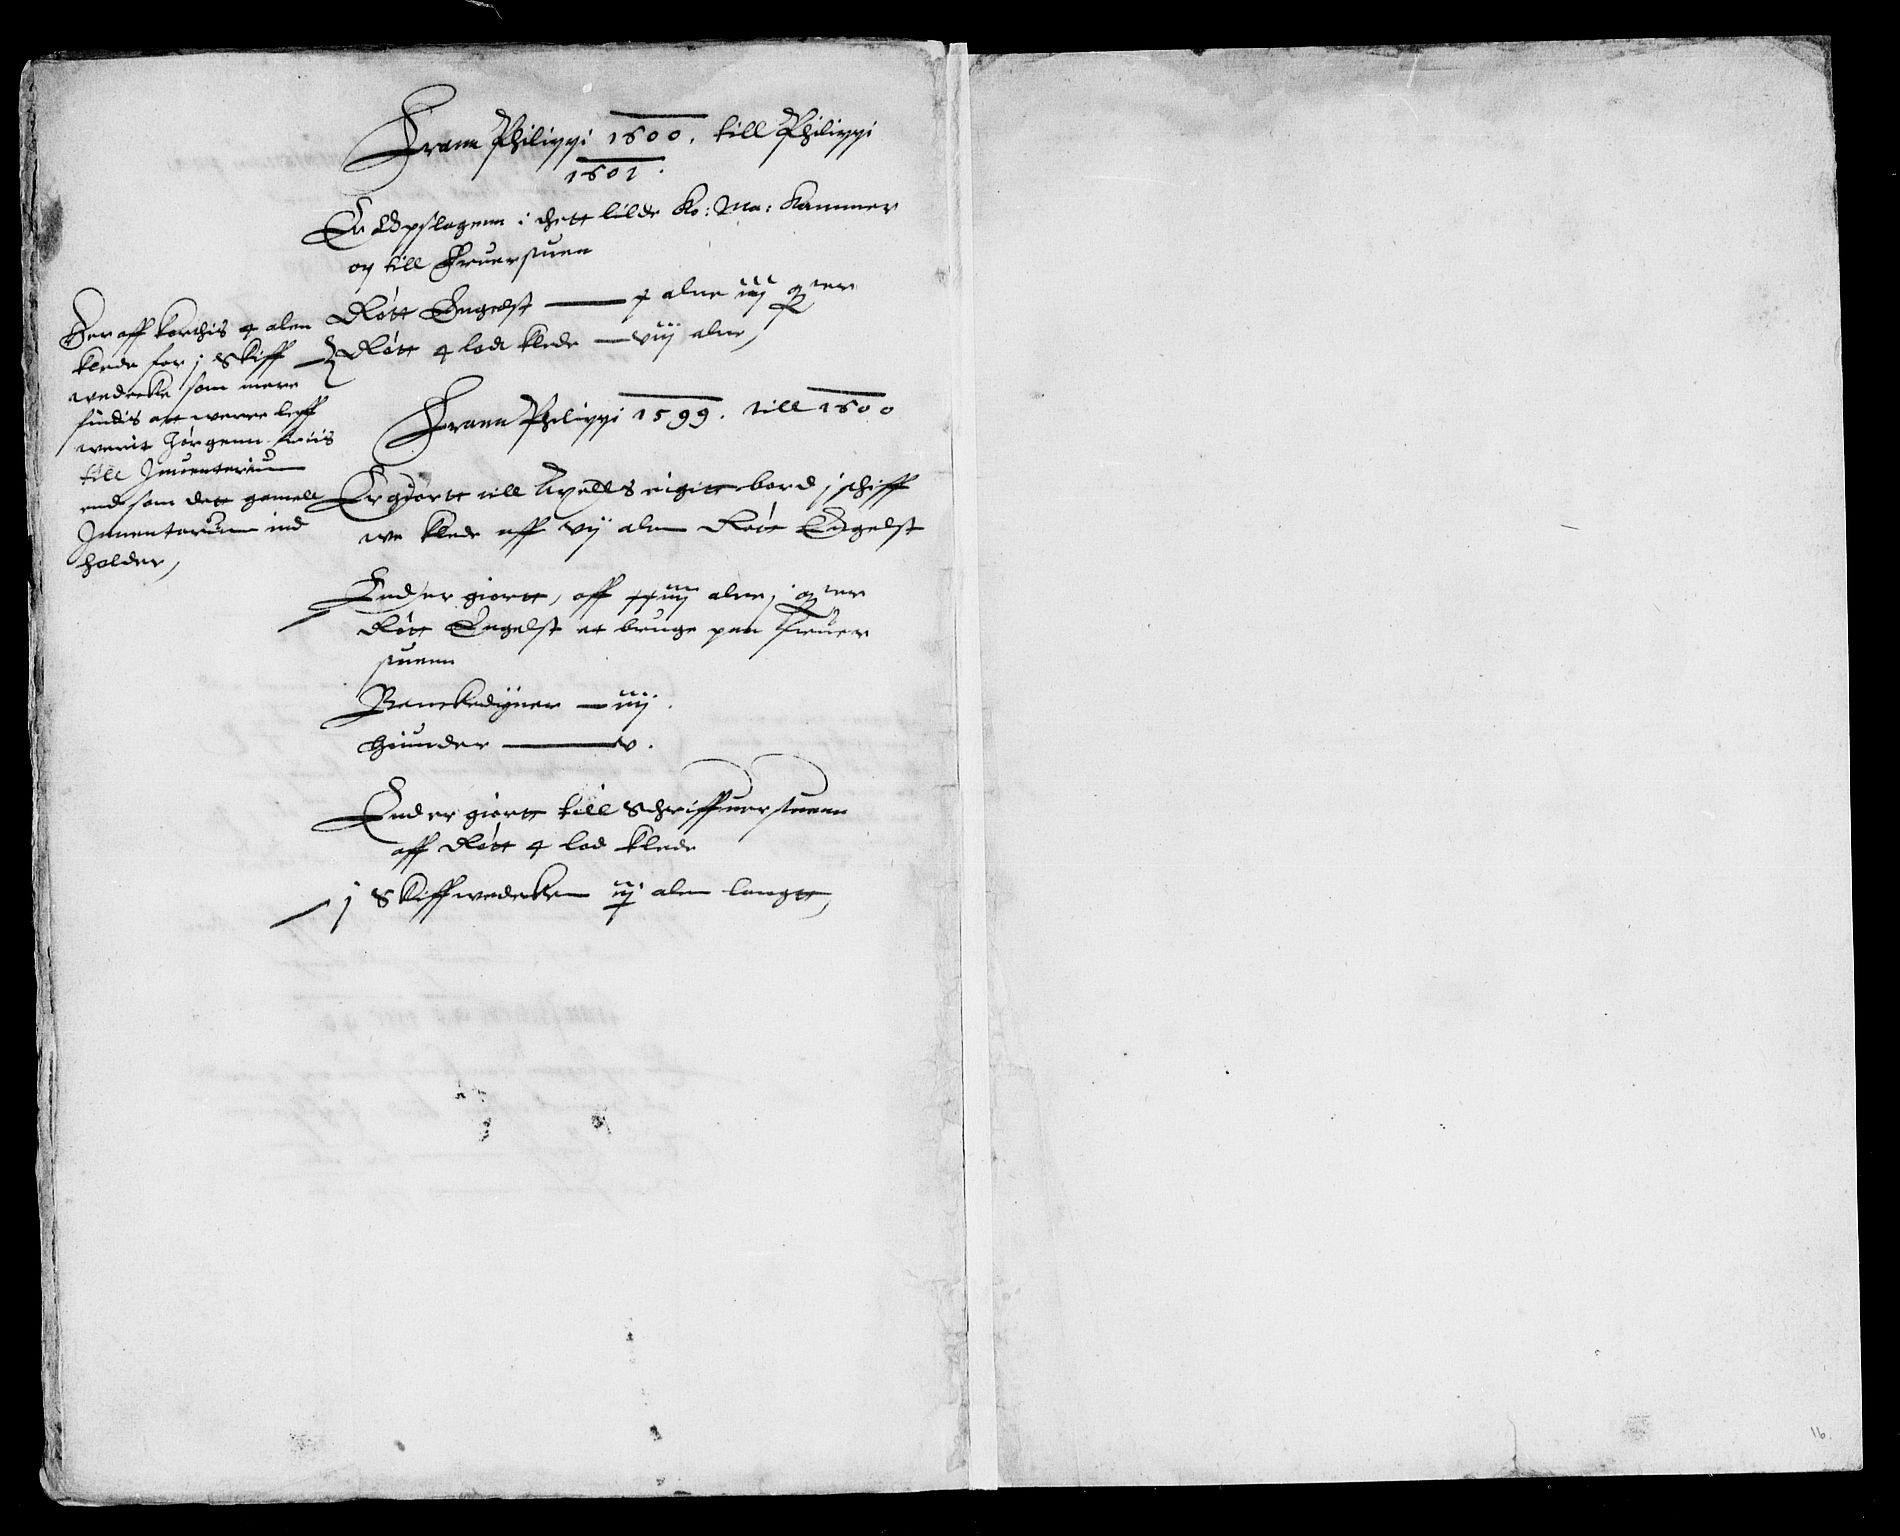 Frann Philippi 1600. till Philippi
1601.
Er Opslagenn i dhett lilde Ko: Ma: Kammer
og till Fruerstuen
Rött Engelst — x alne iiij qter
Rött 4 lod klede — viij alne,
Her aff kortthis 4 alen
klede for j Skiff
wedecke som mere
findis att werre leff
werit Jørgenn Friis
till Inuentarium
end som dett gamell
Inuentarium ind
holder,
Frann Philippi 1599. till 1600
Er giortt till Axells eigitt bord j schiff
we klede aff vij alen Rött Engelst
End er giortt, aff xxiiij alne, j qter
Rött Engelst at bruge paa Fruer
stuenn
Benckedyner — iiij.
Hiunder — v.
End er giortt till Schriffuerstuenn
aff Rött 4 lod klede
j Skiffwedecken iij alen langtt,
16.